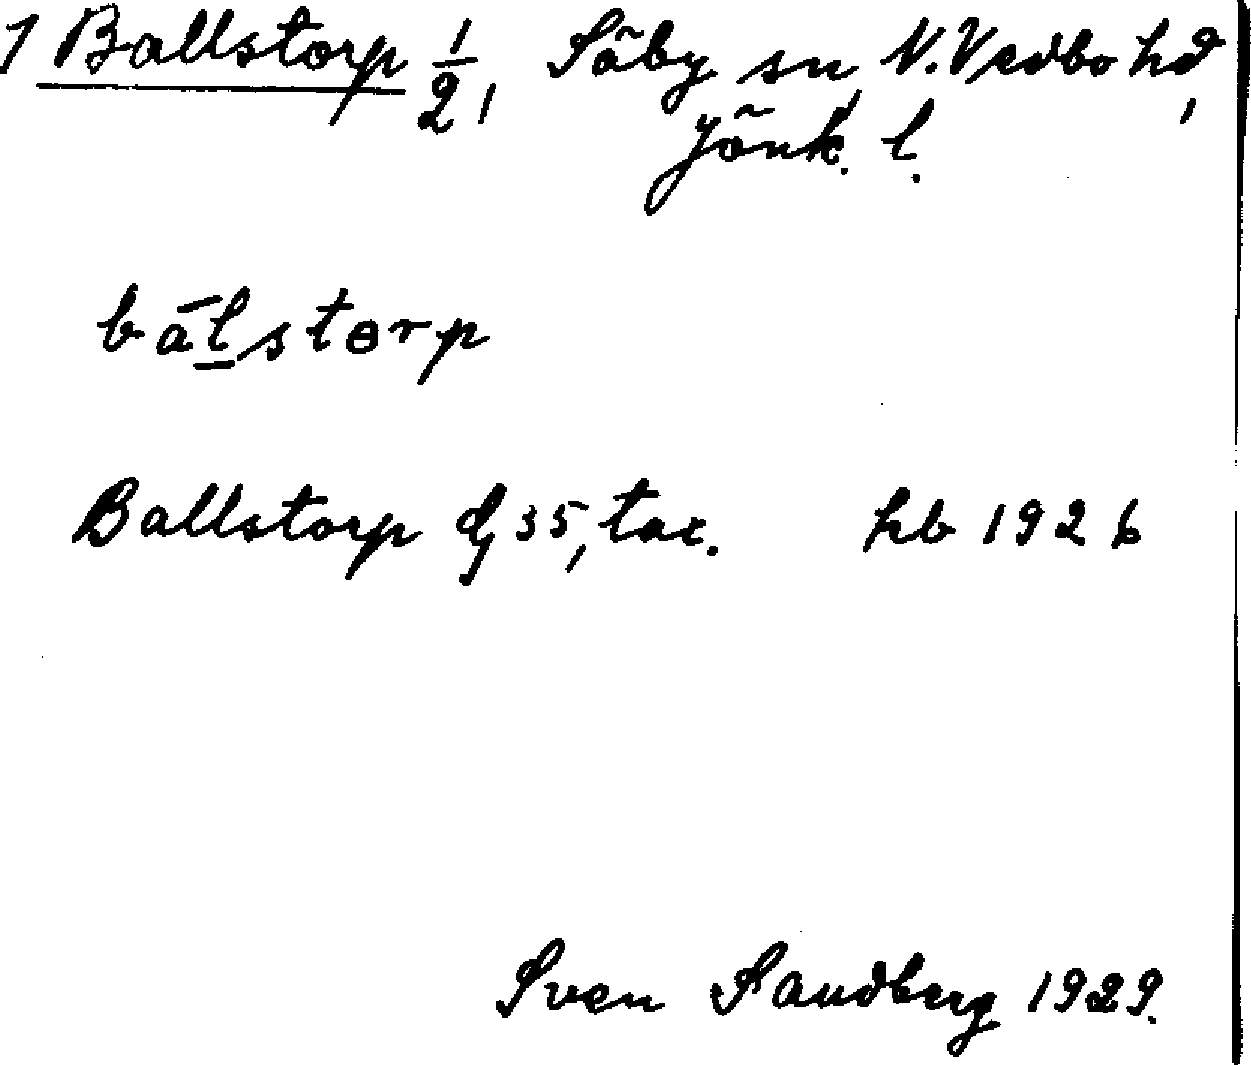 1 Ballstorp 1/2, Säby sn, N. Vedbo hd,
Jönk. l.
bālstɵrp
Ballstorp dj 35, tax. hb 1926
Sven Sandberg 1929.